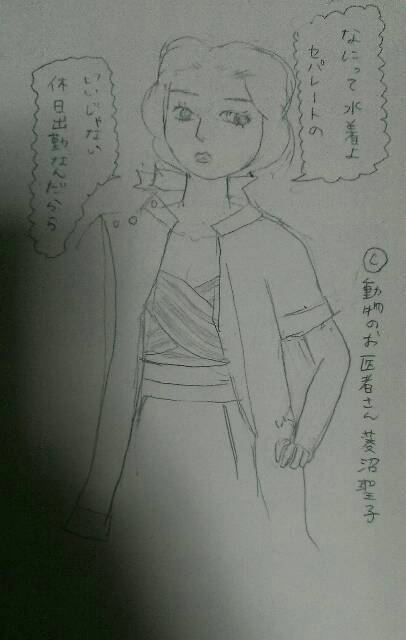 なにって水着よ
セパレートの
いいじゃない
休日出勤なんだから
Ⓛ動物のお医者さん 菱沼聖子